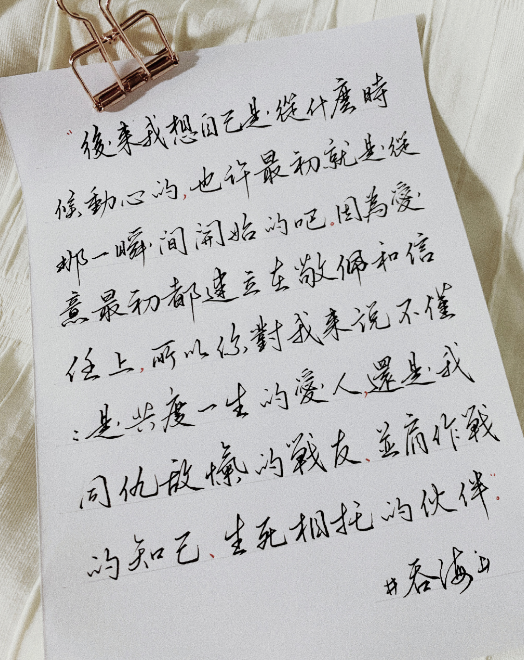 “後来我想自己是從什麼時
候動心的,也许最初就是從
那一瞬间開始的吧。因為愛
意最初都建立在敬佩和信
任上,所以你對我来说不僅
：是共度一生的愛人,還是我
同仇敌愾的戰友、並肩作戰
的知己、生死相托的伙伴”。
#吞海